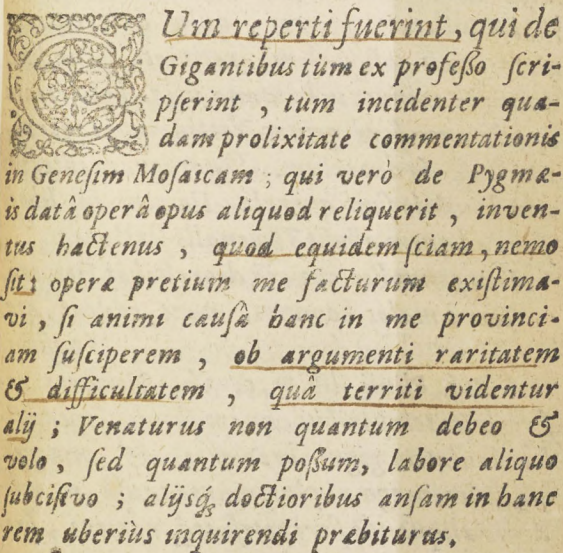 CUm reperti fuerint, qui de
Gigantibus tùm ex professo scri-
pserint, tum incidenter qua-
dam prolixitate commentationis
in Genesim Mosaicam; qui verò de Pygmæ-
is datâ operâ opus aliquod reliquerit, inven-
tus hactenus, quod equidem sciam, nemo
sit: operæ pretium me facturum existima-
vi, si animi causâ hanc in me provinci-
am susciperem, ob argumenti raritatem
& difficultatem, quâ territi videntur
alij; Venaturus non quantum debeo &
volo, sed quantum possum, labore aliquo
subcisivo; alijsq́; doctioribus ansam in hanc
rem uberiùs inquirendi præbiturus.